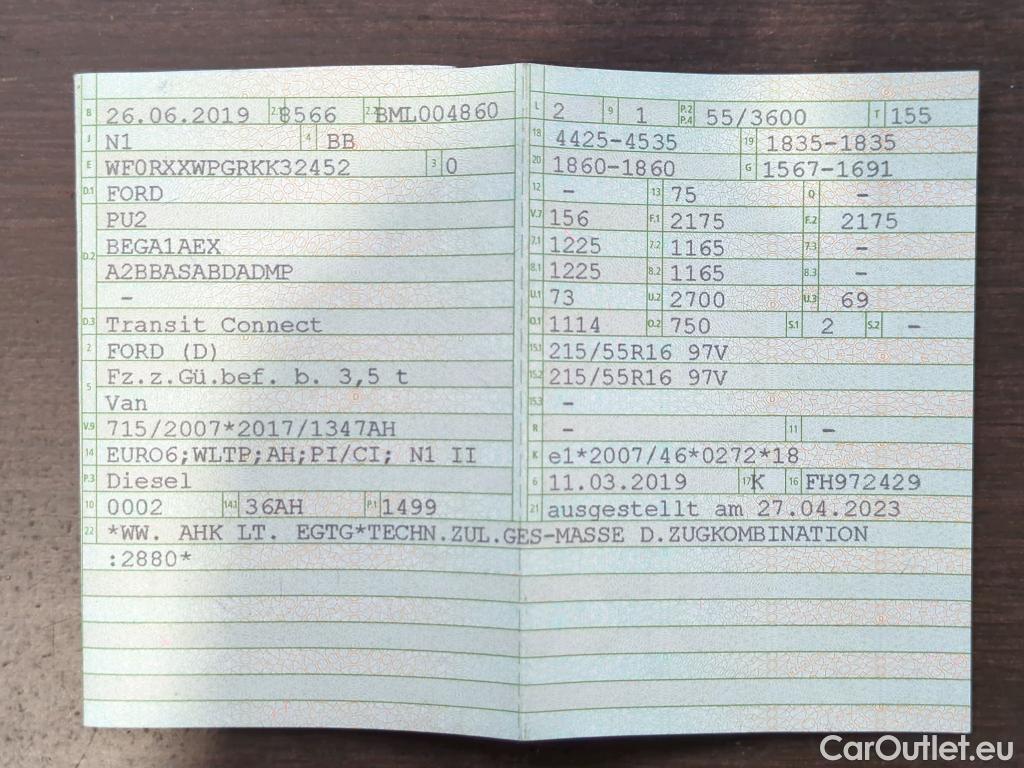 B 26.06.2019 2.1 8566 2.2 BML004860
J N1 4 BB
E WF0RXXWPGRKK32452 3 0
D.1 FORD
PU2
D.2 BEGA1AEX
A2BBASABDADMP
–
D.3 Transit Connect
2 FORD (D)
5 Fz.z.Gü.bef. b. 3,5 t
Van
V.9 715/2007*2017/1347AH
14 EURO6;WLTP;AH;PI/CI; N1 II
P.3 Diesel
10 0002 14.1 36AH P.1 1499
L 2 9 1 P.2 P.4 55/3600 T 155
18 4425-4535 19 1835-1835
20 1860-1860 G 1567-1691
12 – 13 75 Q –
V.7 156 F.1 2175 F.2 2175
7.1 1225 7.2 1165 7.3 –
8.1 1225 8.2 1165 8.3 –
U.1 73 U.2 2700 U.3 69
O.1 1114 O.2 750 S.1 2 S.2 –
15.1 215/55R16 97V
15.2 215/55R16 97V
15.3 –
R – 11 –
K e1*2007/46*0272*18
6 11.03.2019 17 K 16 FH972429
21 ausgestellt am 27.04.2023
22 *WW. AHK LT. EGTG*TECHN.ZUL.GES-MASSE D.ZUGKOMBINATION
:2880*
CarOutlet.eu